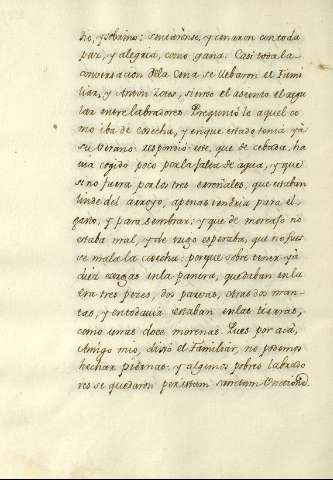 ño, y sobrino: sentaronse, y cenaron con toda
paz, y alegria, como gana. Casi toda la
conversacion dela Cena se llebaron el Fami
liar, y Anton Zotes, siendo el asunto el regu
lar entre labradores. Preguntó le aquel co
mo iba de cosecha, y en que estado tenia yà
su Verano: respondió este, que de cebada, ha
via cogido poco por la falta de agua, y que
si no fuera por los tres cerroñales, que estaban
linde del arroyo, apenas tendria para el
gasto, y para sembrar: y que de morcajo no
estaba mal, y de trigo esperaba, que no fues
se mala la cosecha: porque sobre tener yà
diez cargas en la panera, quedaban en la
Era tres peces, dos parvas, otras dos man
tas, y en todavia estaban en las tierras,
como unas doce morenas. Pues por acà,
Amigo mio, dixo el Familiar, no podemos
hechar piernas: y algunos pobres labrado
res se quedaron per istam sanctam Unctionẽ.